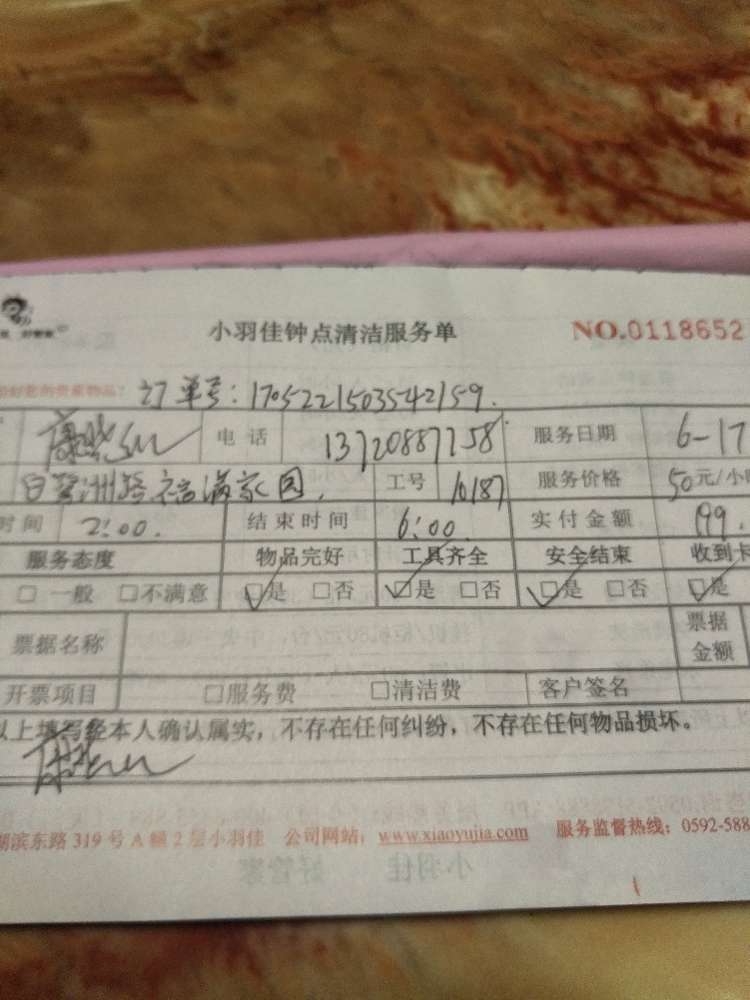 小羽佳钟点清洁服务单 NO.0118652
好您的贵重物品: 订单号: 1705221503542159.
电话 13720887758 服务日期 6-17
白鹭洲路 福满家园. 工号 10187 服务价格 50元/小
时间 2:00. 结束时间 6:00. 实付金额 199.
服务态度 物品完好 工具齐全 安全结束 收到卡
□一般 □不满意 ☑是 □否 ☑是 □否 ☑是 □否 ☑是
票据名称 票据金额
开票项目 □服务费 □清洁费 客户签名
以上填写经本人确认属实，不存在任何纠纷，不存在任何物品损坏。
湖滨东路319号A幢2层小羽佳 公司网站：www.xiaoyujia.com 服务监督热线：0592-588